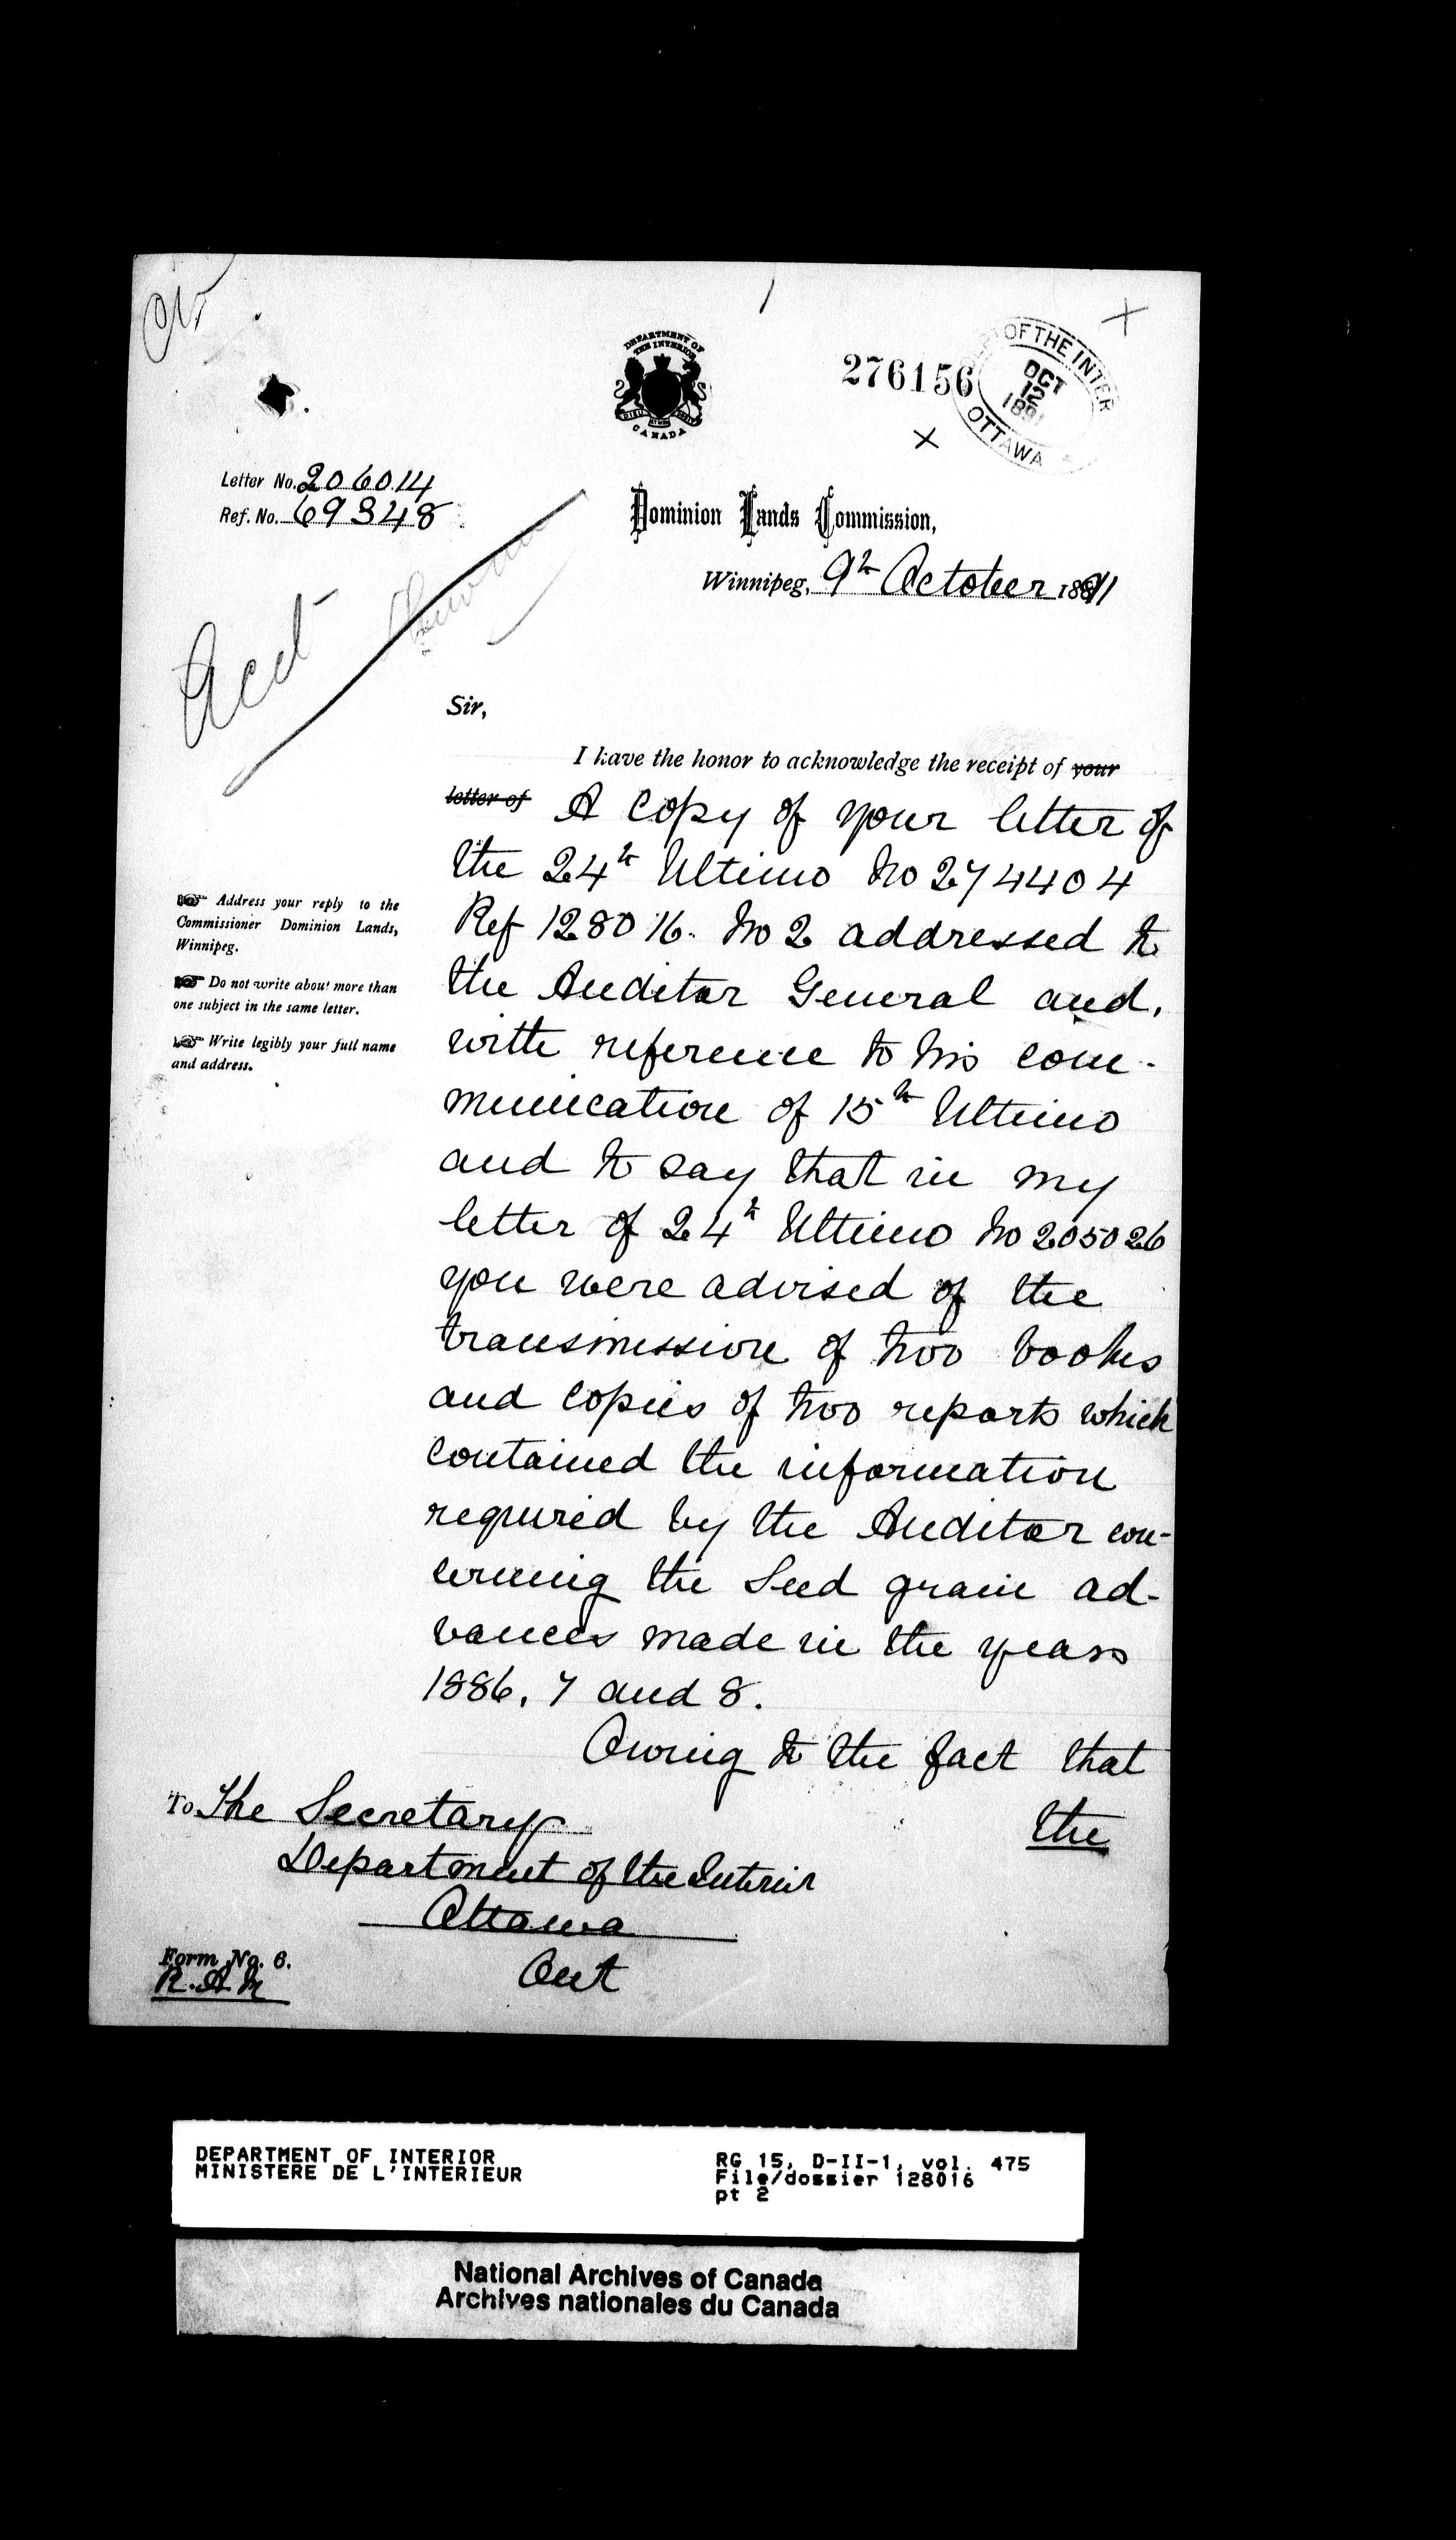 DEPARTMENT OF
THE INTERIOR
CANADA
276156
DEPT OF THE INTER
OCT
12
1891
OTTAWA
Letter No. 206014
Ref. No. 69348
Dominion Lands Commission,
Winnipeg, 9th October 1891
Acct
Sir,
I have the honor to acknowledge the receipt of your
letter of A Copy of your letter of
the 24th Ultimo No 274404
Ref 128016. No 2 addressed to
the Auditor General and,
with reference to his com-
munication of 15th Ultimo
and to say that in my
letter of 24th Ultimo No 205026
you were advised of the
transmission of two books
and copies of two reports which
contained the information
required by the Auditor con-
cerning the Seed grain ad-
vances made in the years
1886, 7 and 8.
Owing to the fact that
the
Address your reply to the
Commissioner Dominion Lands,
Winnipeg.
Do not write about more than
one subject in the same letter.
Write legibly your full name
and address.
To The Secretary
Department of the Interior
Ottawa
Ont
Form No. 6.
DEPARTMENT OF INTERIOR
MINISTERE DE L'INTERIEUR
RG 15, D-II-1, vol. 475
File/dossier 128016
pt 2
National Archives of Canada
Archives nationales du Canada